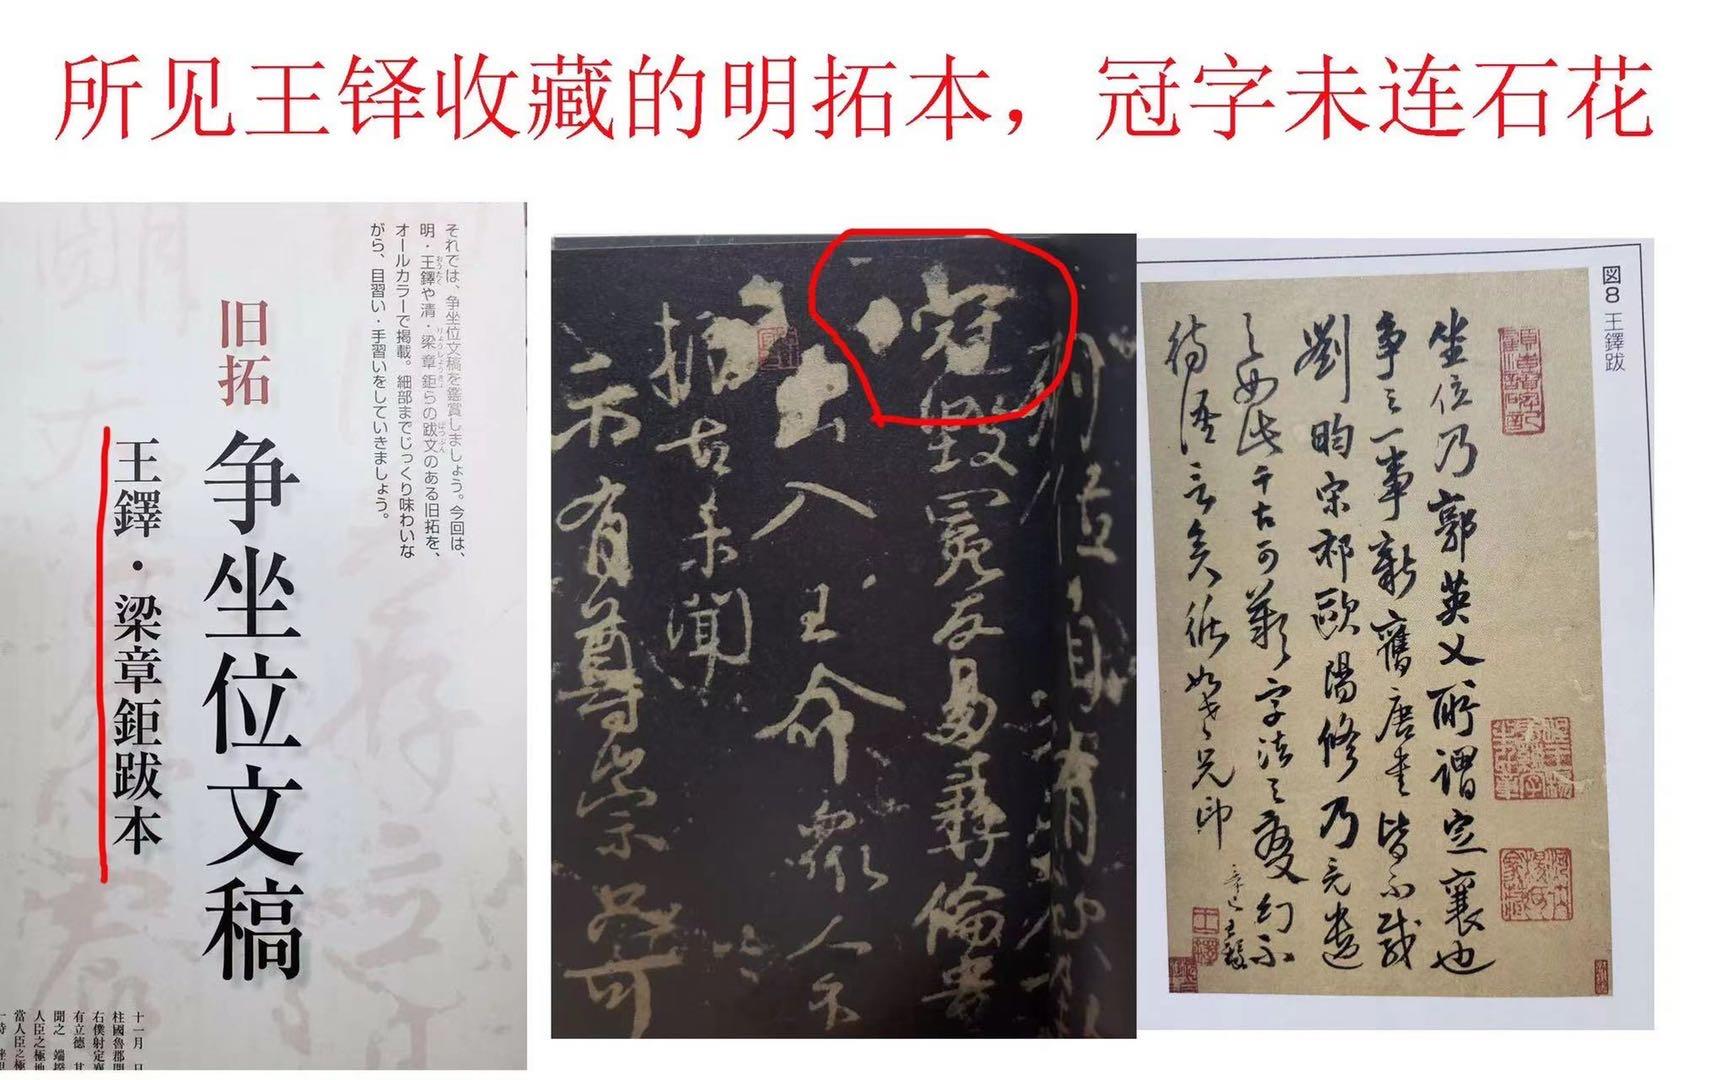 所见王铎收藏的明拓本，冠字未连石花
それでは、争坐位文稿を鑑賞しましょう。今回は、
明・王鐸や清・梁章鉅らの跋文のある旧拓を、
オールカラーで掲載。細部までじっくり味わいな
がら、目習い・手習いをしていきましょう。
旧拓 争坐位文稿
王鐸・梁章鉅跋本
十一月 日
柱國魯郡開
右僕射定襄
有立德 其
聞之 端揆
人臣之極地
當人臣之極
冠毀冕反易彝倫貴
出入王命眾人不
振古未聞
亦有尊崇只可
図8 王鐸跋
坐位乃郭英乂所謂定襄也
争之一事新舊唐書皆不載
劉昫宋祁歐陽修乃忘遺
之如此千古可歎字法之变幻不
待濡言矣
辛巳王鐸
王鐸